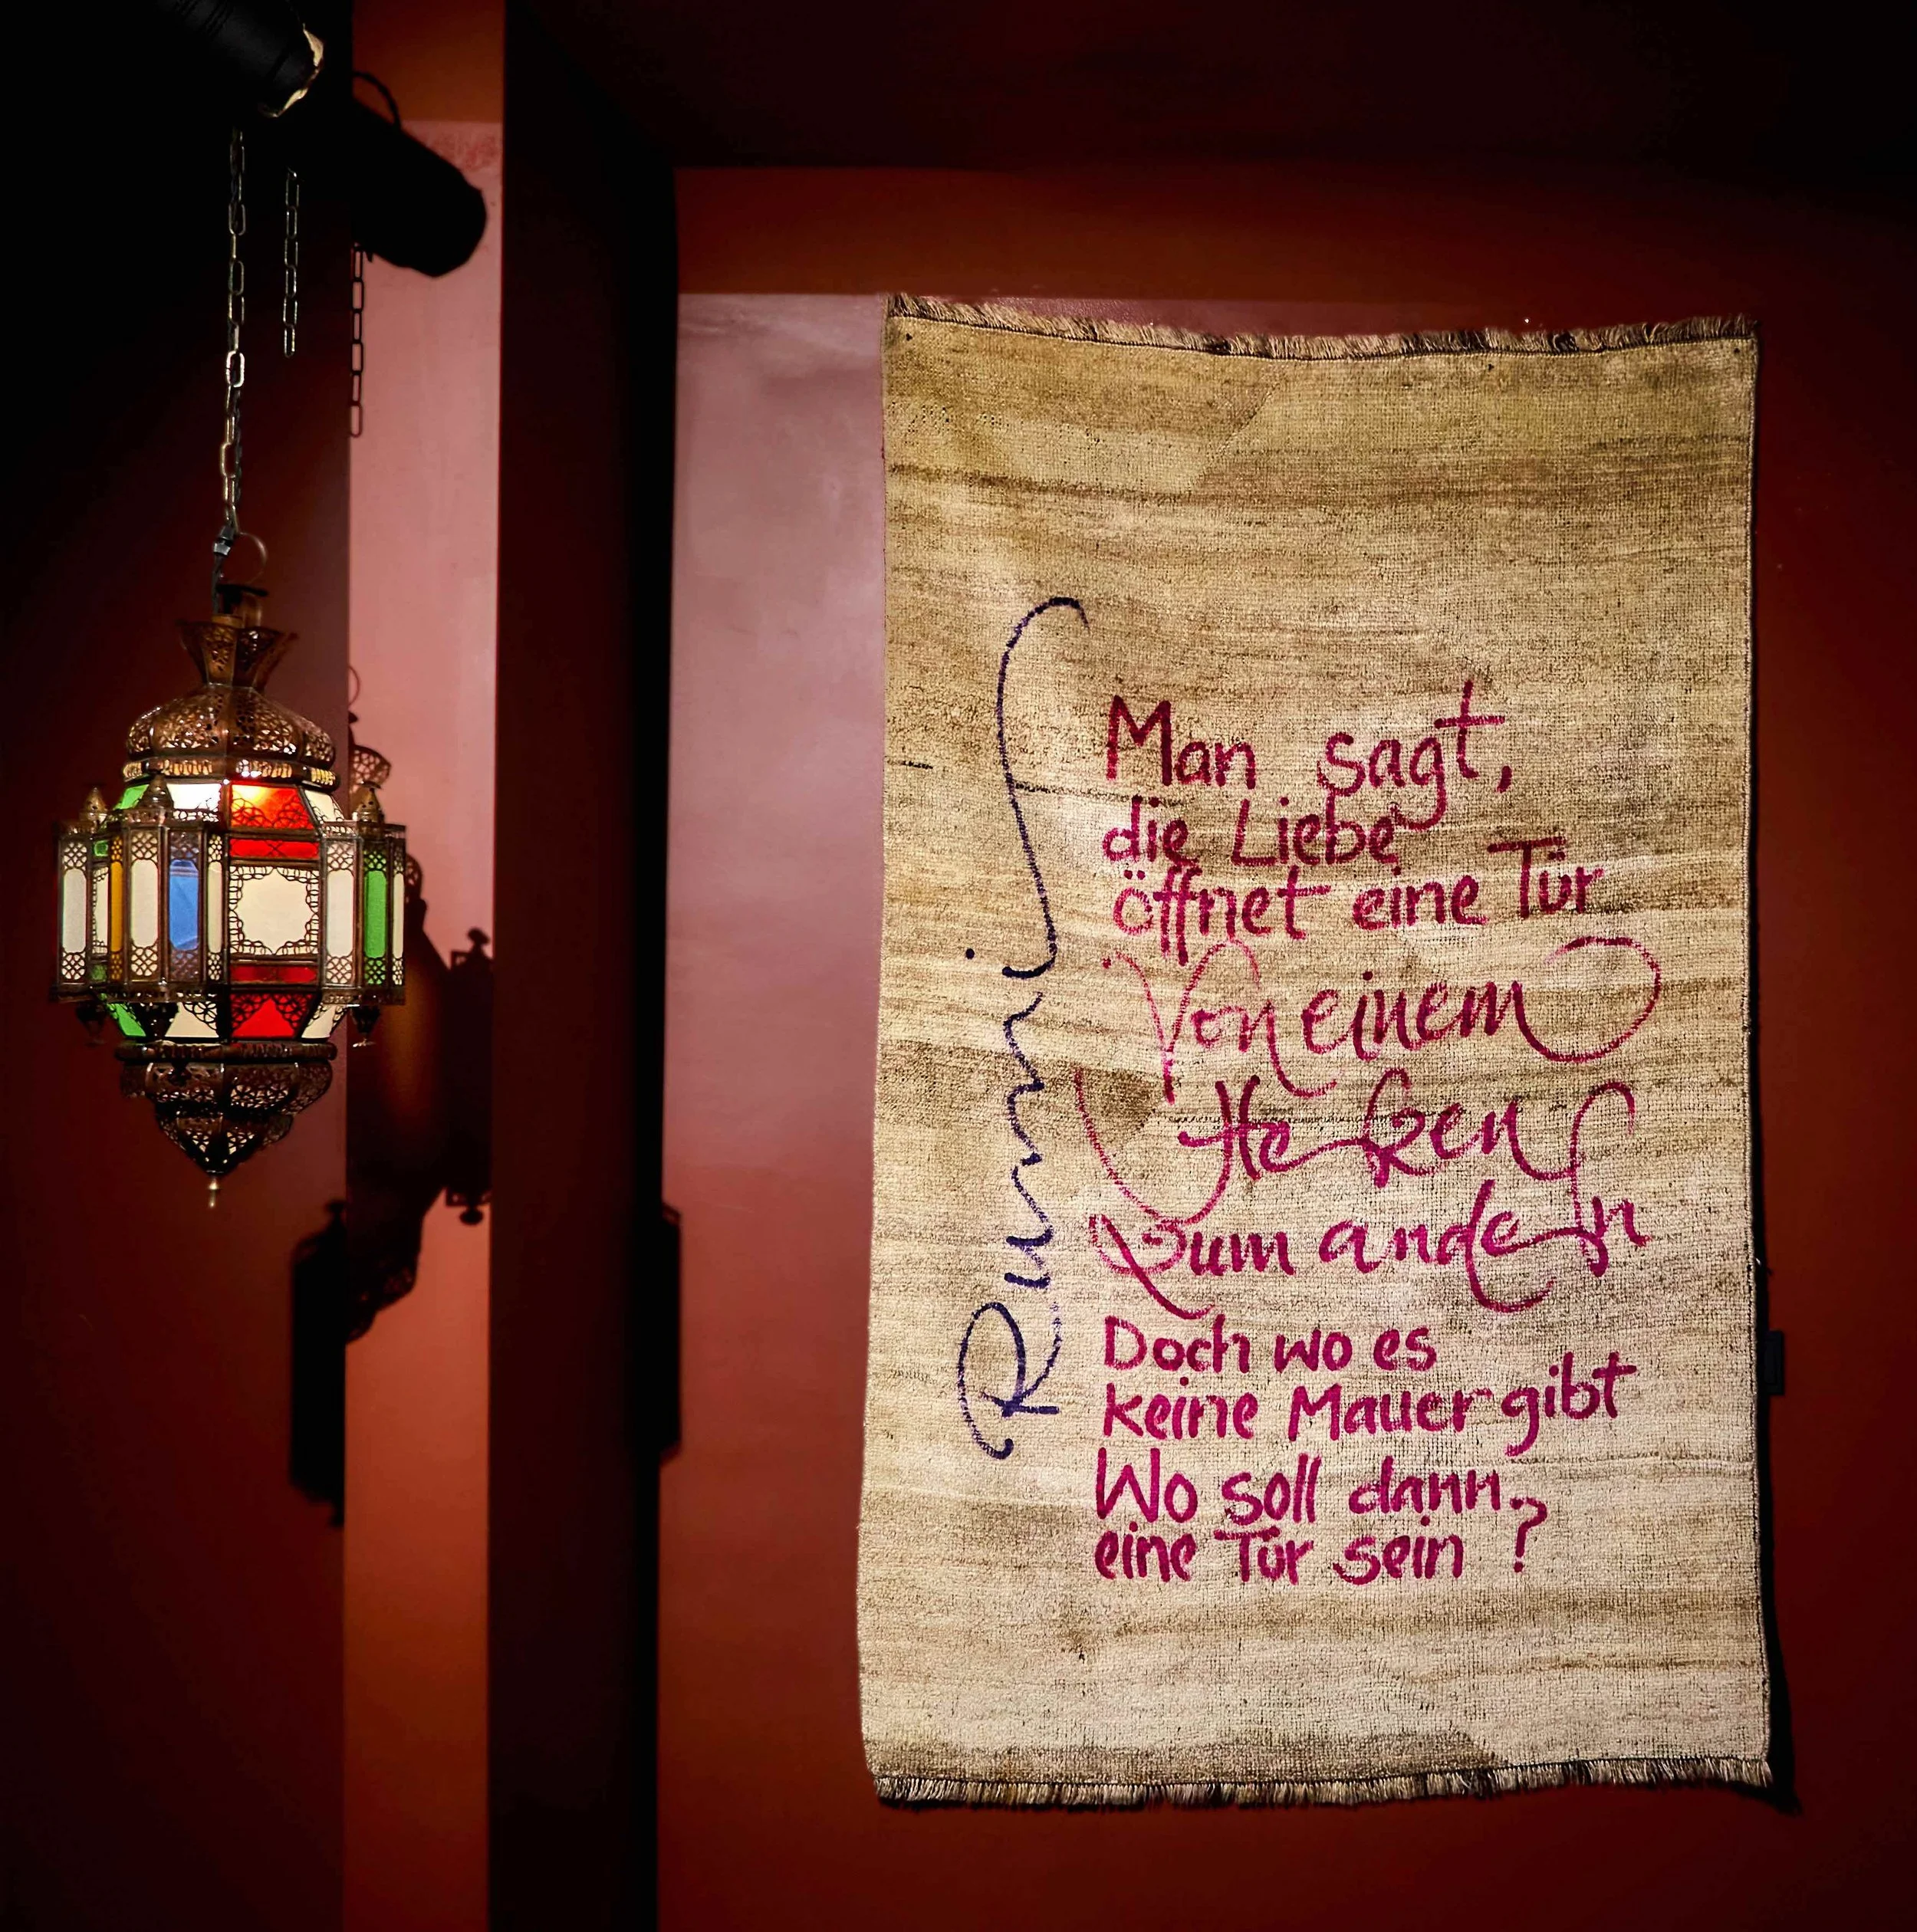 Rumi
Man sagt,
die Liebe
öffnet eine Tür
Von einem
Herzen
zum andern
Doch wo es
keine Mauer gibt
Wo soll dann
eine Tür sein ?